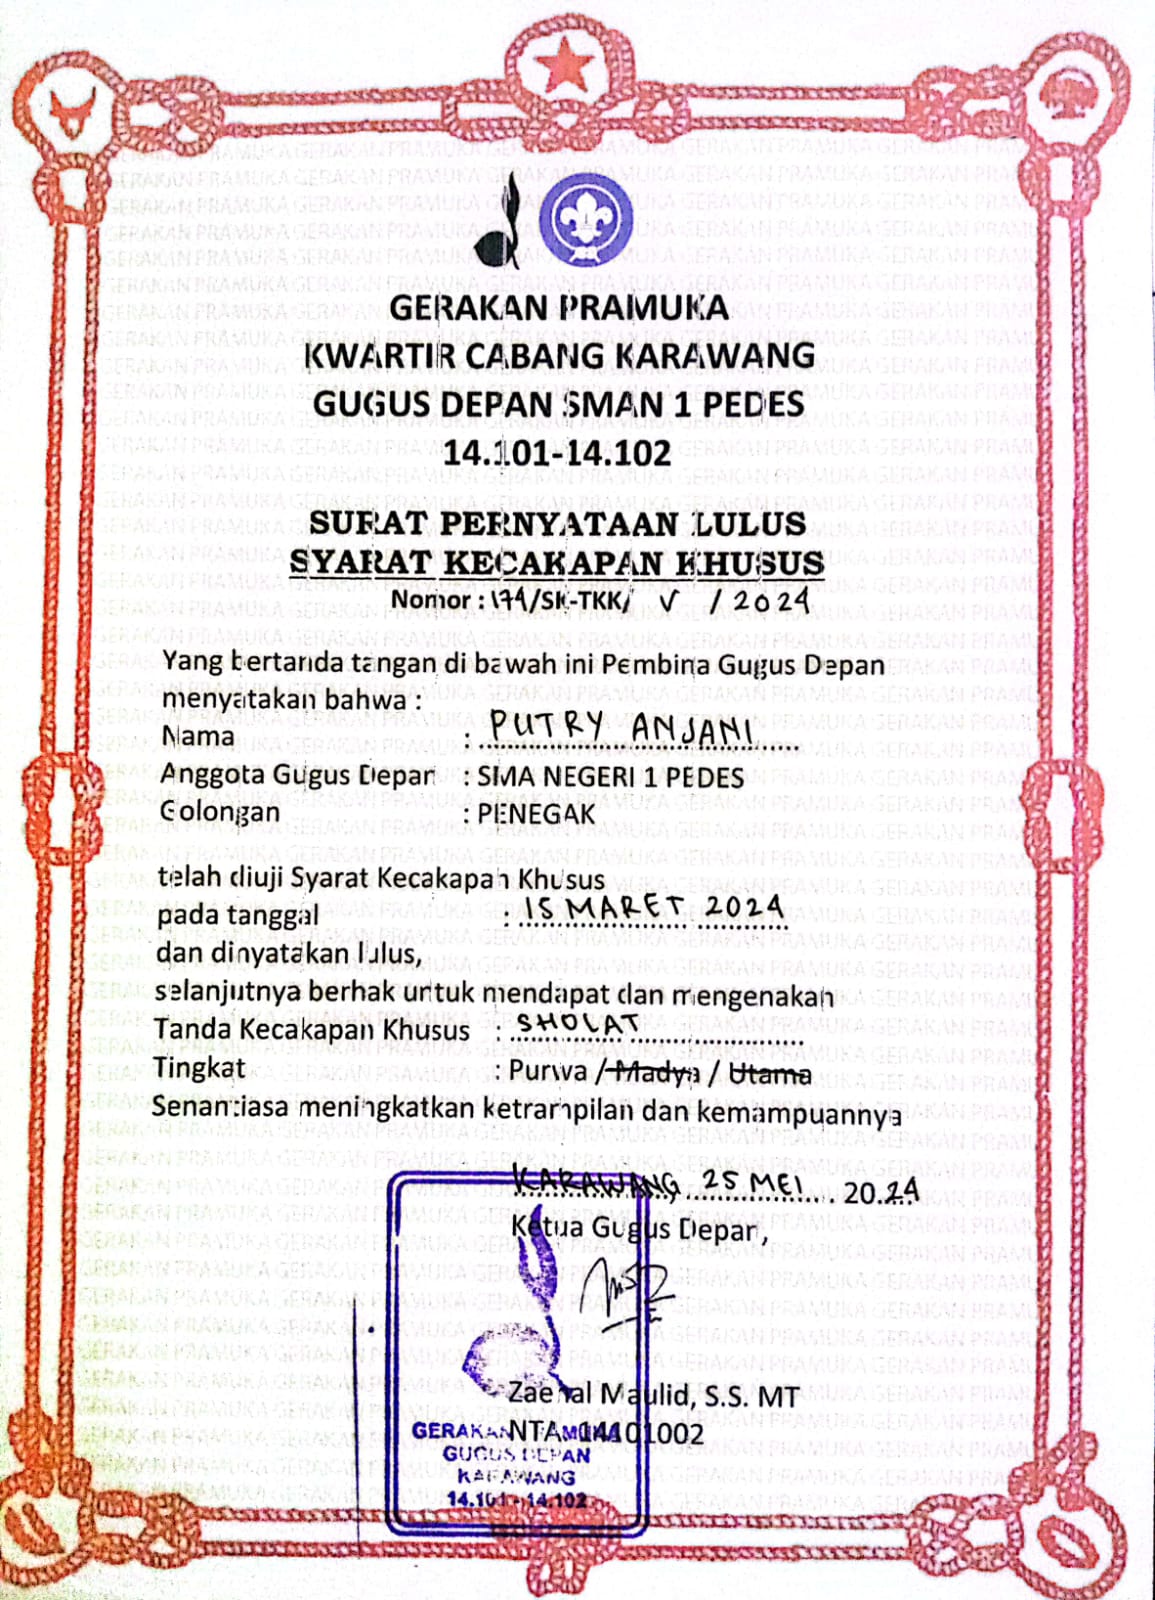 GERAKAN PRAMUKA
KWARTIR CABANG KARAWANG
GUGUS DEPAN SMAN 1 PEDES
14.101-14.102
SURAT PERNYATAAN LULUS
SYARAT KECAKAPAN KHUSUS
Nomor : 174/SK-TKK/ V / 2024
Yang bertanda tangan di bawah ini Pembina Gugus Depan
menyatakan bahwa :
Nama : PUTRY ANJANI
Anggota Gugus Depan : SMA NEGERI 1 PEDES
Golongan : PENEGAK
telah diuji Syarat Kecakapan Khusus
pada tanggal 15 MARET 2024
dan dinyatakan lulus,
selanjutnya berhak untuk mendapat dan mengenakan
Tanda Kecakapan Khusus : SHOLAT
Tingkat : Purwa / Madya / Utama
Senantiasa meningkatkan ketrampilan dan kemampuannya
KARAWANG 25 MEI 2024
Ketua Gugus Depan,
Zaenal Maulid, S.S. MT
NTA 14101002
GERAKAN PRAMUKA
GUGUS DEPAN
KARAWANG
14.101 - 14.102